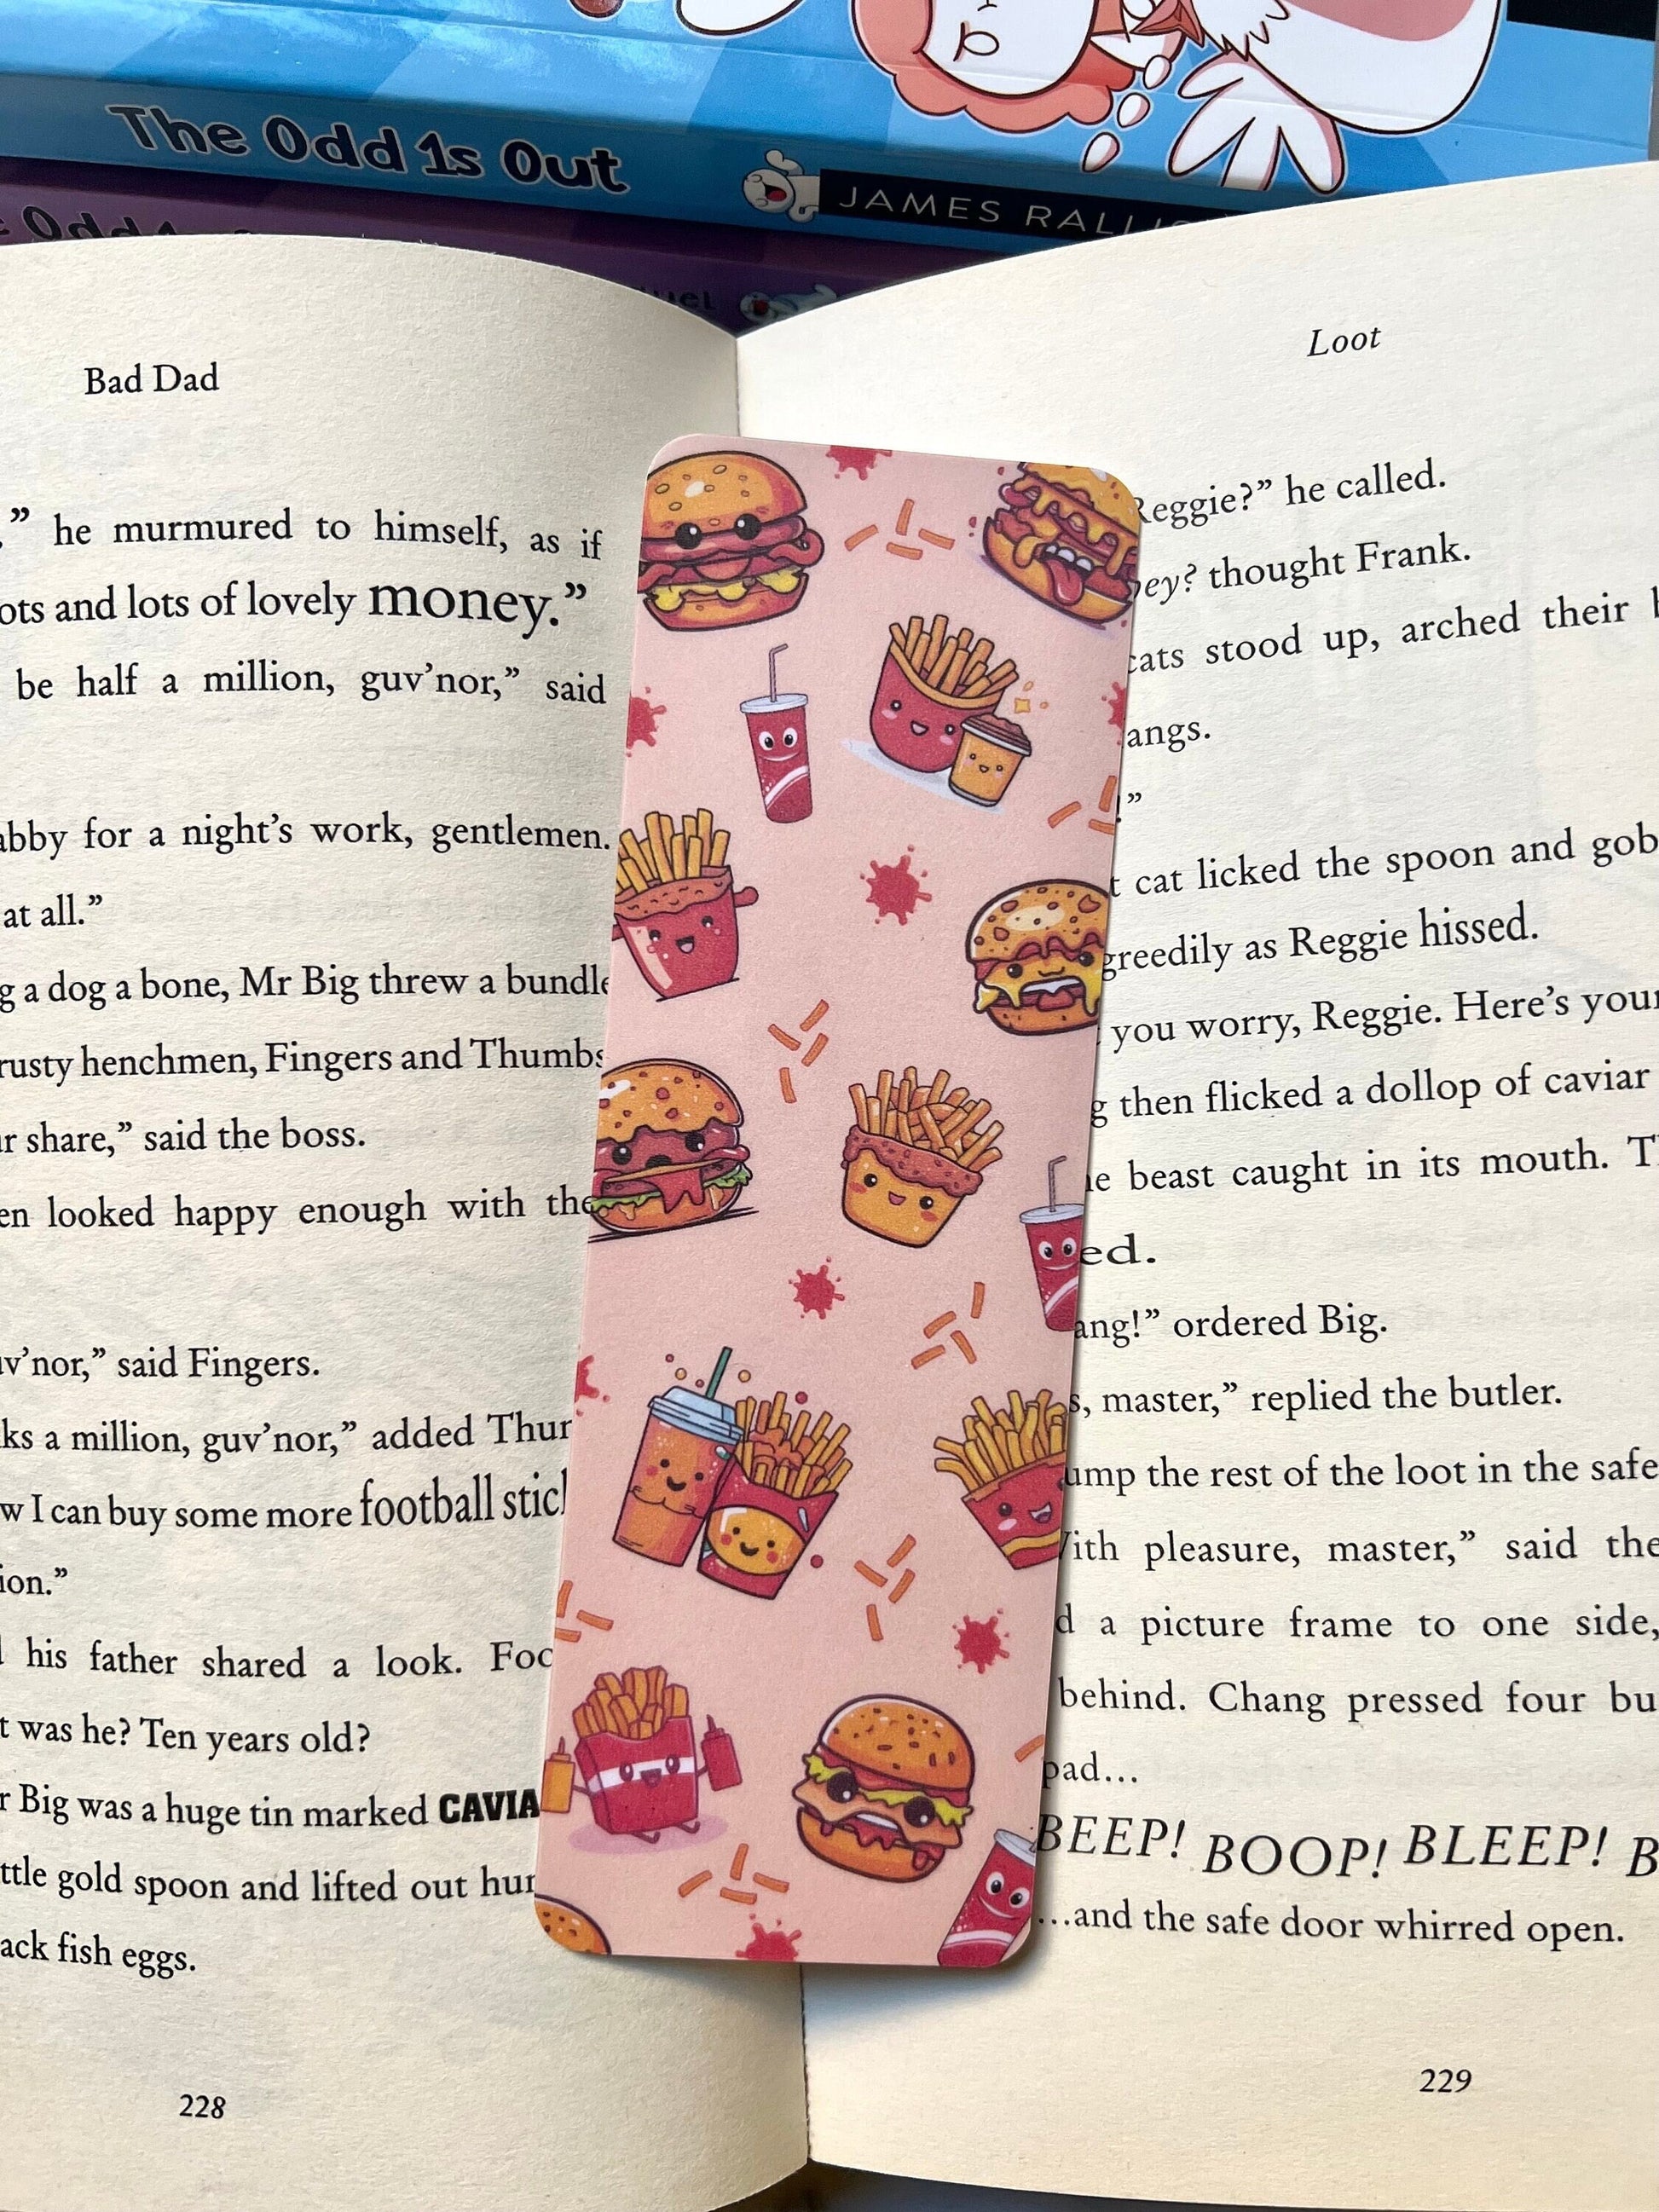 The Odd 1s Out
JAMES
Odd
Bad Dad
” he murmured to himself, as if
and lots of lovely money.”
be half a million, guv’nor,” said
for a night’s work, gentlemen.
at all.”
a dog a bone, Mr Big threw a bundle
henchmen, Fingers and Thumbs
share,” said the boss.
looked happy enough with the
said Fingers.
a million, guv’nor,” added
I can buy some more football
his father shared a look.
was he? Ten years old?
Big was a huge tin marked
gold spoon and lifted out
fish eggs.
228
Loot
Reggie?” he called.
thought Frank.
cats stood up, arched their
”
cat licked the spoon and
greedily as Reggie hissed.
you worry, Reggie. Here’s
then flicked a dollop of caviar
beast caught in its mouth.
ordered Big.
master,” replied the butler.
the rest of the loot in the safe
pleasure, master,” said the
a picture frame to one side,
behind. Chang pressed four
pad…
BEEP! BOOP! BLEEP!
…and the safe door whirred open.
229